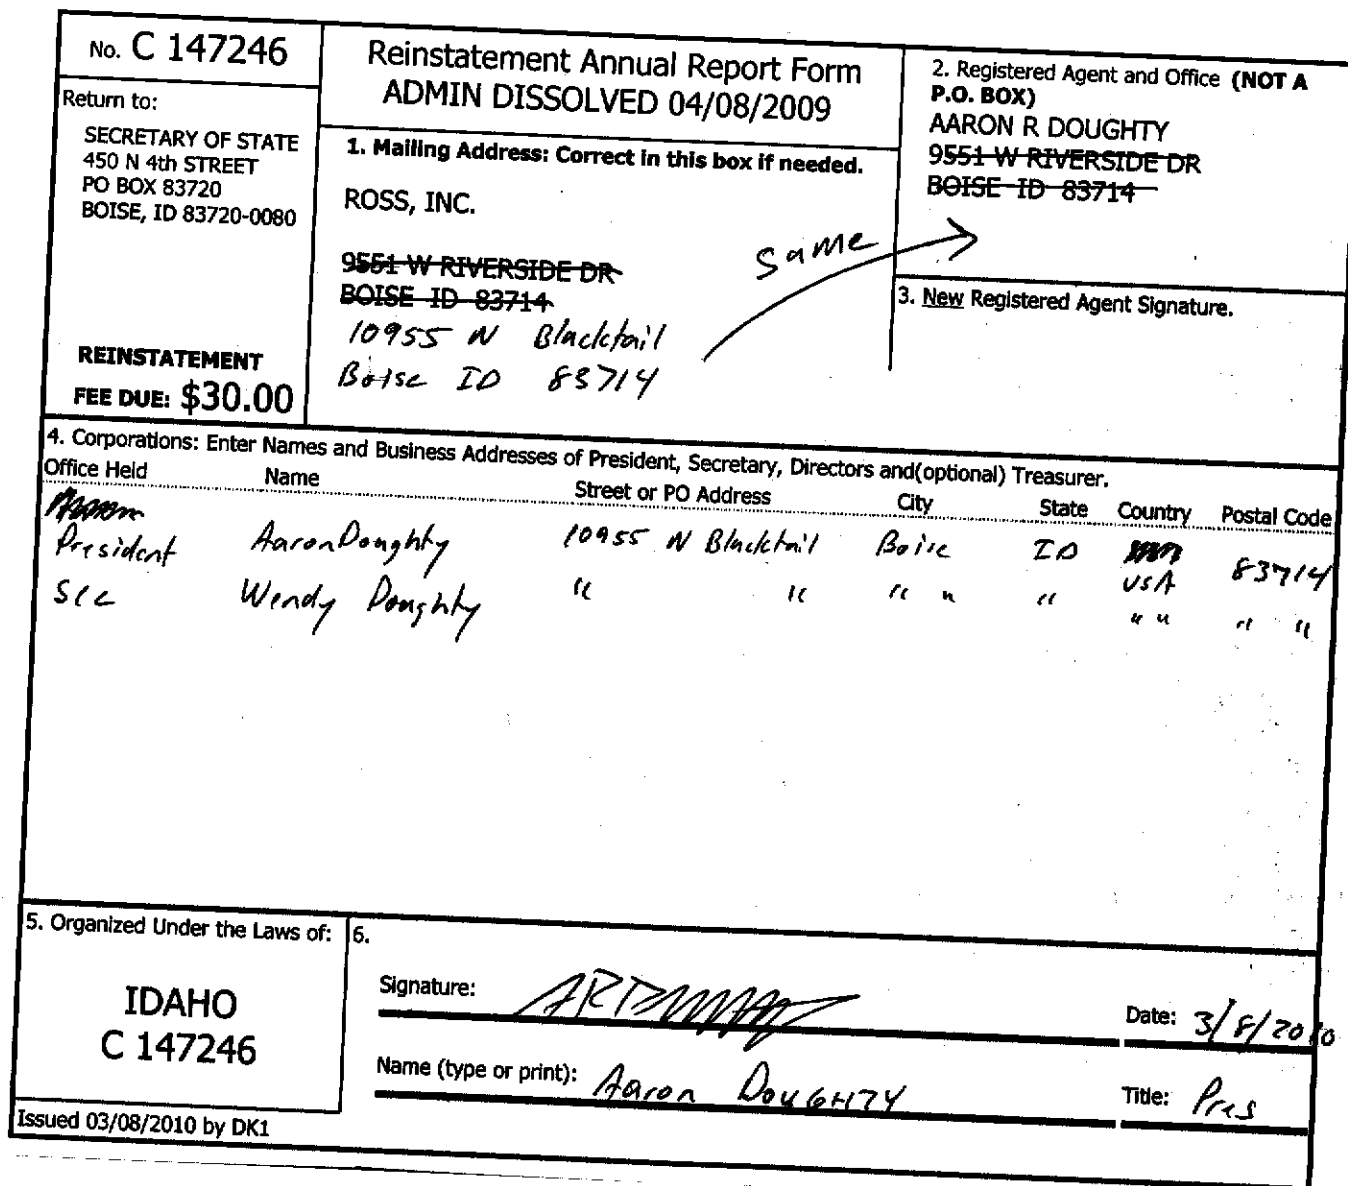 No. C 147246
Return to:
SECRETARY OF STATE
450 N 4th STREET
PO BOX 83720
BOISE, ID 83720-0080
REINSTATEMENT
FEE DUE: $30.00
Reinstatement Annual Report Form
ADMIN DISSOLVED 04/08/2009
1. Mailing Address: Correct in this box if needed.
ROSS, INC.
9551 W RIVERSIDE DR
BOISE ID 83714
10955 N Blacktail
Boise ID 83714
same
2. Registered Agent and Office (NOT A
P.O. BOX)
AARON R DOUGHTY
9551 W RIVERSIDE DR
BOISE ID 83714
3. New Registered Agent Signature.
4. Corporations: Enter Names and Business Addresses of President, Secretary, Directors and(optional) Treasurer.
Office Held Name Street or PO Address City State Country Postal Code
President Aaron Doughty 10955 N Blacktail Boise ID USA 83714
Sec Wendy Doughty " " " " " " " " "
5. Organized Under the Laws of:
IDAHO
C 147246
6.
Signature:
Date: 3/8/2010
Name (type or print): Aaron DOUGHTY
Title: Pres
Issued 03/08/2010 by DK1